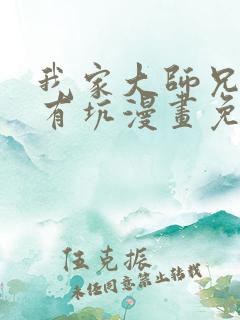 我家大師兄
有坑漫畫免
伍克振
未任同意禁止转载